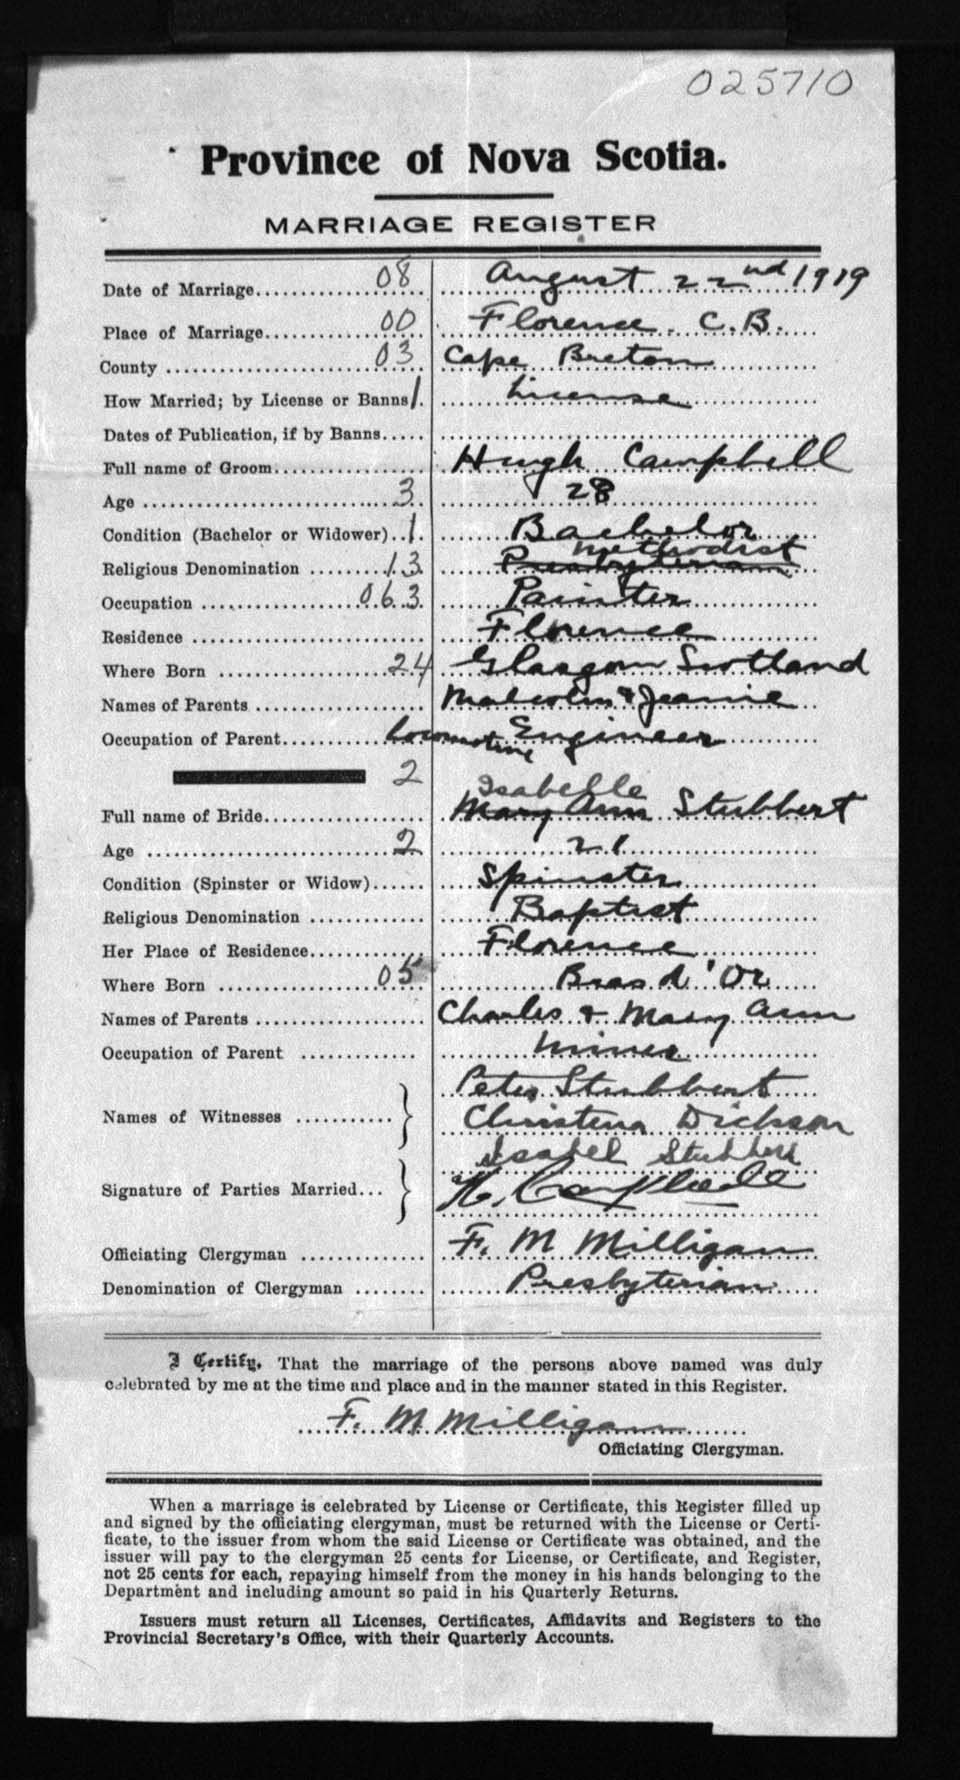 025710
Province of Nova Scotia.
MARRIAGE REGISTER
Date of Marriage 08 August 22nd 1919
Place of Marriage 00 Florence. C.B.
County 03 Cape Breton
How Married; by License or Banns 1 License
Dates of Publication, if by Banns
Full name of Groom Hugh Campbell
Age 3 28
Condition (Bachelor or Widower) 1 Bachelor
Methodist
Religious Denomination 13 Presbyterian
Occupation 063 Painter
Residence Florence
Where Born 24 Glasgow Scotland
Names of Parents Malcolm & Jeanie
Occupation of Parent Locomotive Engineer
2 Isabelle
Full name of Bride Mary Ann Stubbert
Age 2 21
Condition (Spinster or Widow) Spinster
Religious Denomination Baptist
Her Place of Residence Florence
Where Born 05 Bras d'Or
Names of Parents Charles & Mary Ann
Occupation of Parent Miner
Peter Stubbert
Names of Witnesses
Christena Dickson
Isabel Stubbert
Signature of Parties Married... H. Campbell
Officiating Clergyman F. M Milligan
Denomination of Clergyman Presbyterian
I Certify, That the marriage of the persons above named was duly
celebrated by me at the time and place and in the manner stated in this Register.
F. M. Milligan
Officiating Clergyman.
When a marriage is celebrated by License or Certificate, this Register filled up
and signed by the officiating clergyman, must be returned with the License or Certi-
ficate, to the issuer from whom the said License or Certificate was obtained, and the
issuer will pay to the clergyman 25 cents for License, or Certificate, and Register,
not 25 cents for each, repaying himself from the money in his hands belonging to the
Department and including amount so paid in his Quarterly Returns.
Issuers must return all Licenses, Certificates, Affidavits and Registers to the
Provincial Secretary's Office, with their Quarterly Accounts.